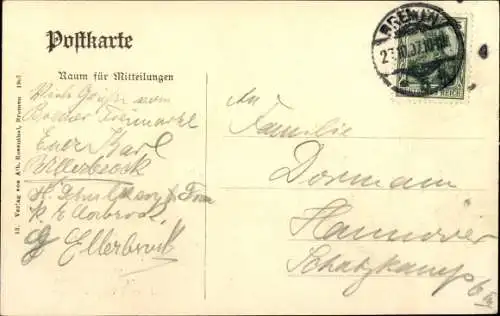 Postkarte
Raum für Mitteilungen
Viele Grüße vom
Bremer Freimarkt
Euer Karl
Ellerbrock
Ellerbrock
13. Verlag von Ad. Rosenthal, Bremen 1907
BREMEN
23.10.07.10-11
REICH
An
Familie
Dormann
Hannover
Schatzkamp